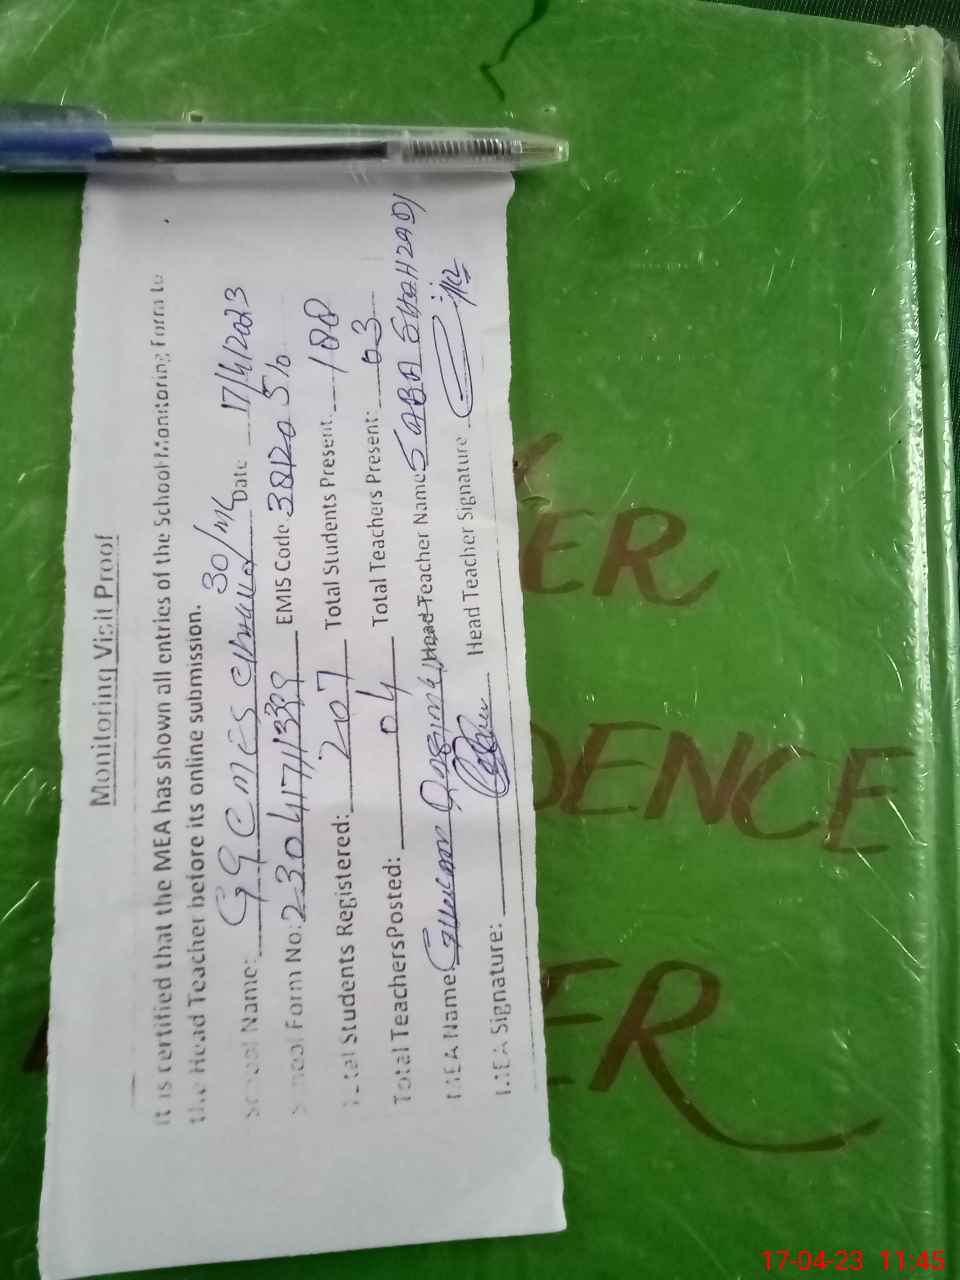 Monitoring Visit Proof
It is certified that the MEA has shown all entries of the School Monitoring Form to
the Head Teacher before its online submission.
School Name: GGCMES 30/MC Date 17/4/2023
School Form No: 230417/1339 EMIS Code
Total Students Registered: 207 Total Students Present: 188
Total TeachersPosted: 04 Total Teachers Present: 03
MEA Name: /Head Teacher Name SABA SHAHZADI
MEA Signature: Head Teacher Signature
ER
DENCE
ER
17-04-23 11:45